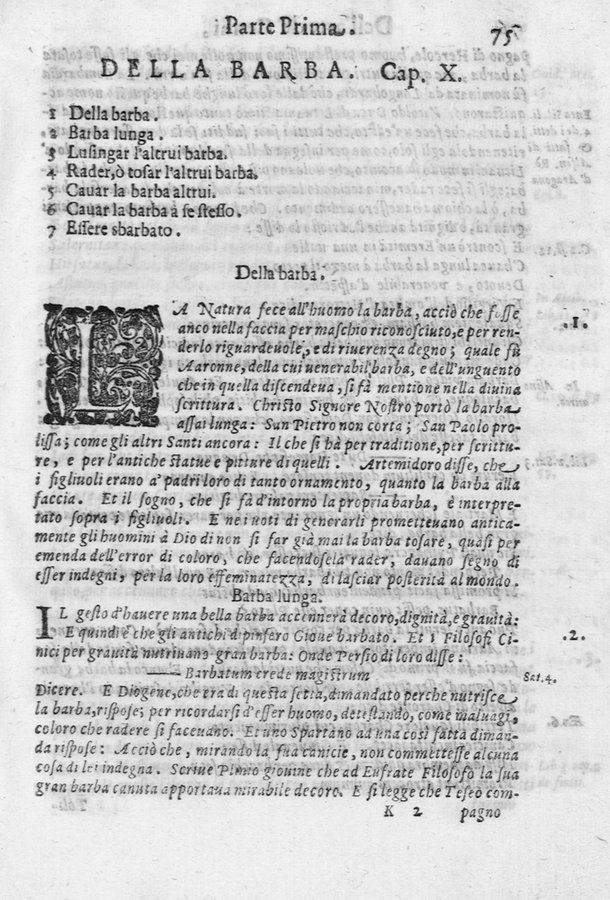 Parte Prima.
75
DELLA BARBA. Cap. X.
1 Della barba.
2 Barba lunga.
3 Lusingar l'altrui barba.
4 Rader, ò tosar l'altrui barba.
5 Cauar la barba altrui.
6 Cauar la barba à se stesso.
7 Essere sbarbato.
Della barba.
LA Natura fece all'huomo la barba, acciò che fusse
.1.
anco nella faccia per maschio riconosciuto, e per ren-
derlo riguardeuole, e di riuerenza degno; quale fù
Aaronne, della cui uenerabil barba, e dell'unguento
che in quella discendeua, si fà mentione nella diuina
scrittura. Christo Signore Nostro portò la barba
assai lunga: San Pietro non corta; San Paolo pro-
lissa; come gli altri Santi ancora: Il che si hà per traditione, per scrittu-
re, e per l'antiche statue e pitture di quelli. Artemidoro disse, che
i figliuoli erano a' padri loro di tanto ornamento, quanto la barba alla
faccia. Et il sogno, che si fà d'intorno la propria barba, è interpre-
tato sopra i figliuoli. E nei uoti di generarli prometteuano antica-
mente gli huomini à Dio di non si far già mai la barba tosare, quasi per
emenda dell'error di coloro, che facendosela rader, dauano segno di
esser indegni, per la loro effeminatezza, di lasciar posterità al mondo.
Barba lunga.
IL gesto d'hauere una bella barba accennerà decoro, dignità, e grauità:
E quindi è che gli antichi dipinsero Gioue barbato. Et i Filosofi Ci-
.2.
nici per grauità nutriuano gran barba: Onde Persio di loro disse:
—— Barbatum crede magistrum
Sat. 4.
Dicere. E Diogene, che era di questa setta, dimandato perche nutrisce
la barba, rispose; per ricordarsi d'esser huomo, detestando, come maluagi,
coloro che radere si faceuano. Et uno Spartano ad una così fatta diman-
da rispose: Acciò che, mirando la sua canicie, non commettesse alcuna
cosa di lei indegna. Scriue Plinio giouine che ad Eufrate Filosofo la sua
gran barba canuta apportaua mirabile decoro. E si legge che Teseo com-
K 2 pagno